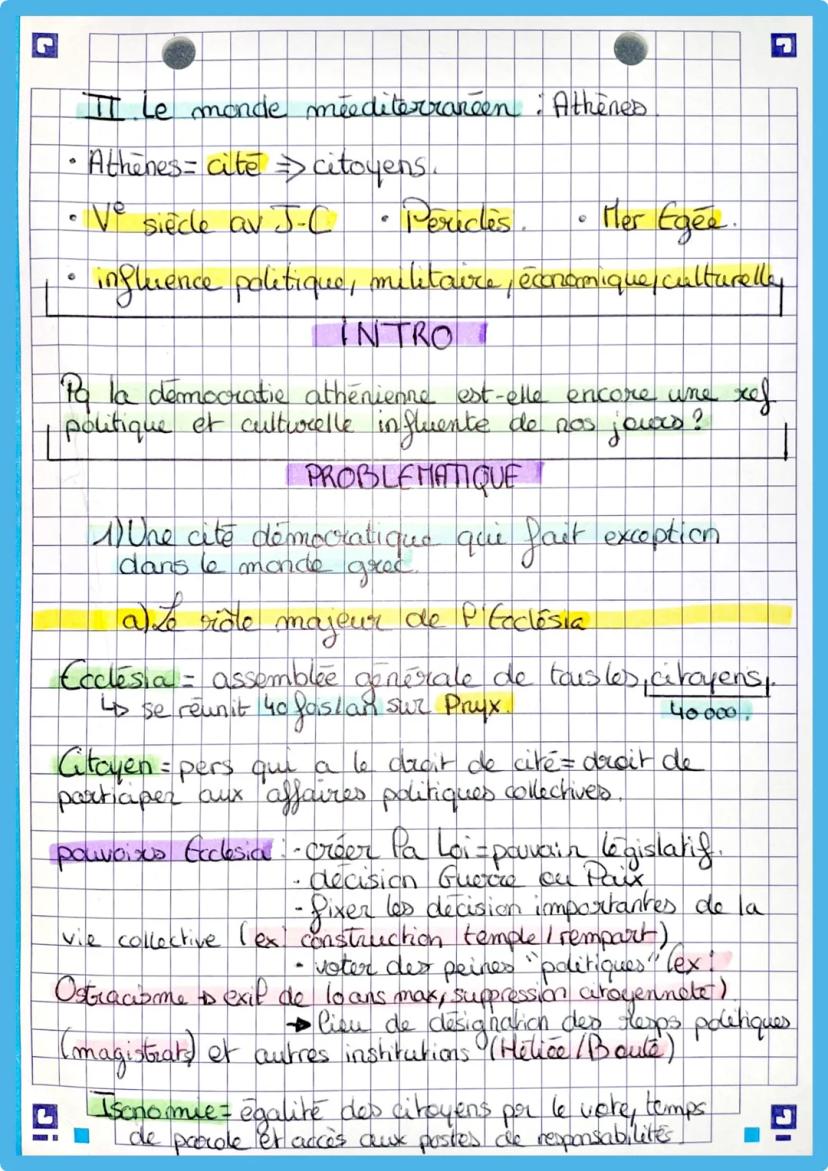 II. Le monde méediterranéen : Athènes.
• Athènes = cité => citoyens.
• Ve siècle av J-C • Périclès. • Mer Egée.
• influence politique, militaire, économique, culturelle
INTRO
Pq la démocratie athénienne est-elle encore une ref
politique et culturelle influente de nos jours ?
PROBLEMATIQUE
1) Une cité démocratique qui fait exception
dans le monde grec.
a) Le rôle majeur de l'Ecclésia
Ecclésia = assemblée générale de tous les citoyens.
↳ se réunit 40 fois/an sur Pnyx. 40 000.
Citoyen = pers qui a le droit de cité = droit de
participer aux affaires politiques collectives.
pouvoirs Ecclesia : - créer la Loi = pouvoir législatif.
- décision Guerre ou Paix
- fixer les décision importantes de la
vie collective (ex : construction temple / rempart)
- voter des peines "politiques" (ex :
Ostracisme ↳ exil de 10 ans max, suppression citoyenneté)
→ lieu de désignation des resps politiques
(magistrats) et autres institutions (Héliée / Boulè)
Isonomie = égalité des citoyens par le vote, temps
de parole et accès aux postes de responsabilités.